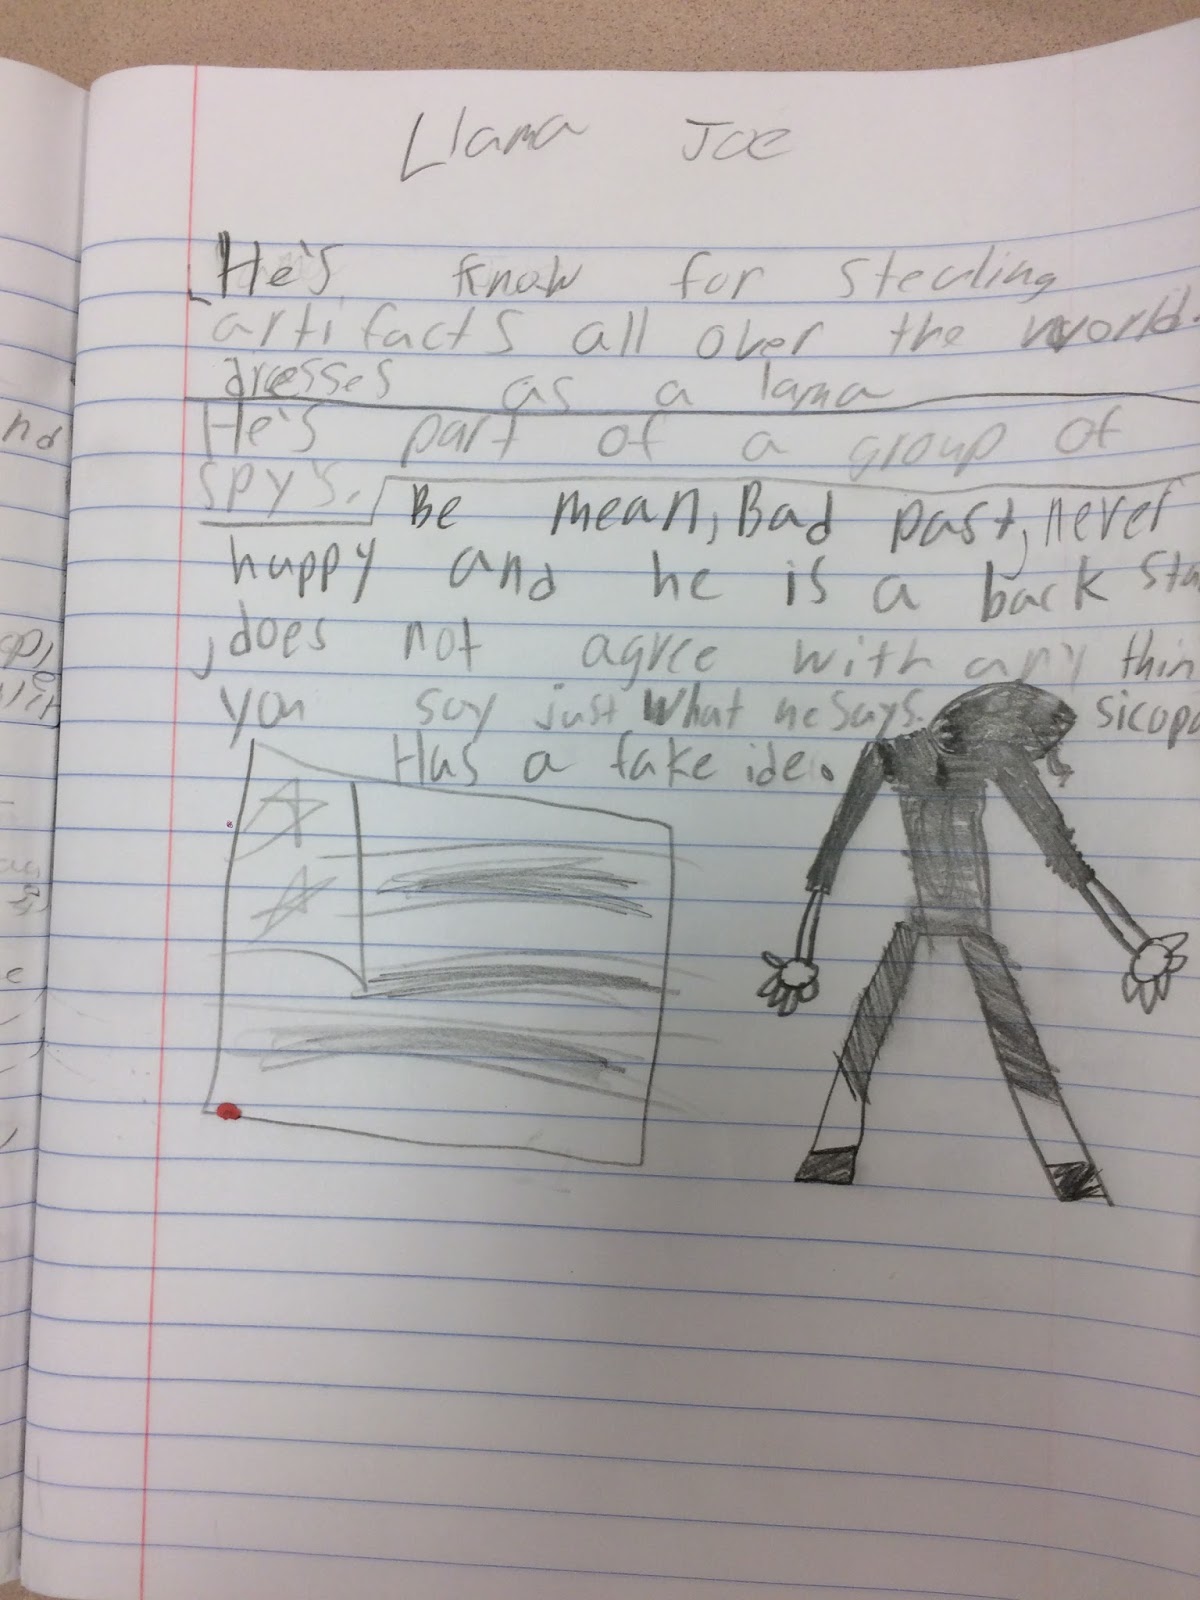 Llama Joe
He's know for stealing
artifacts all over the world.
dresses as a lama
He's part of a group of
spy's.
Be mean, Bad past, never
happy and he is a back sta
, does not agree with any thin
you say just what he says. sicopa
Has a fake ide.